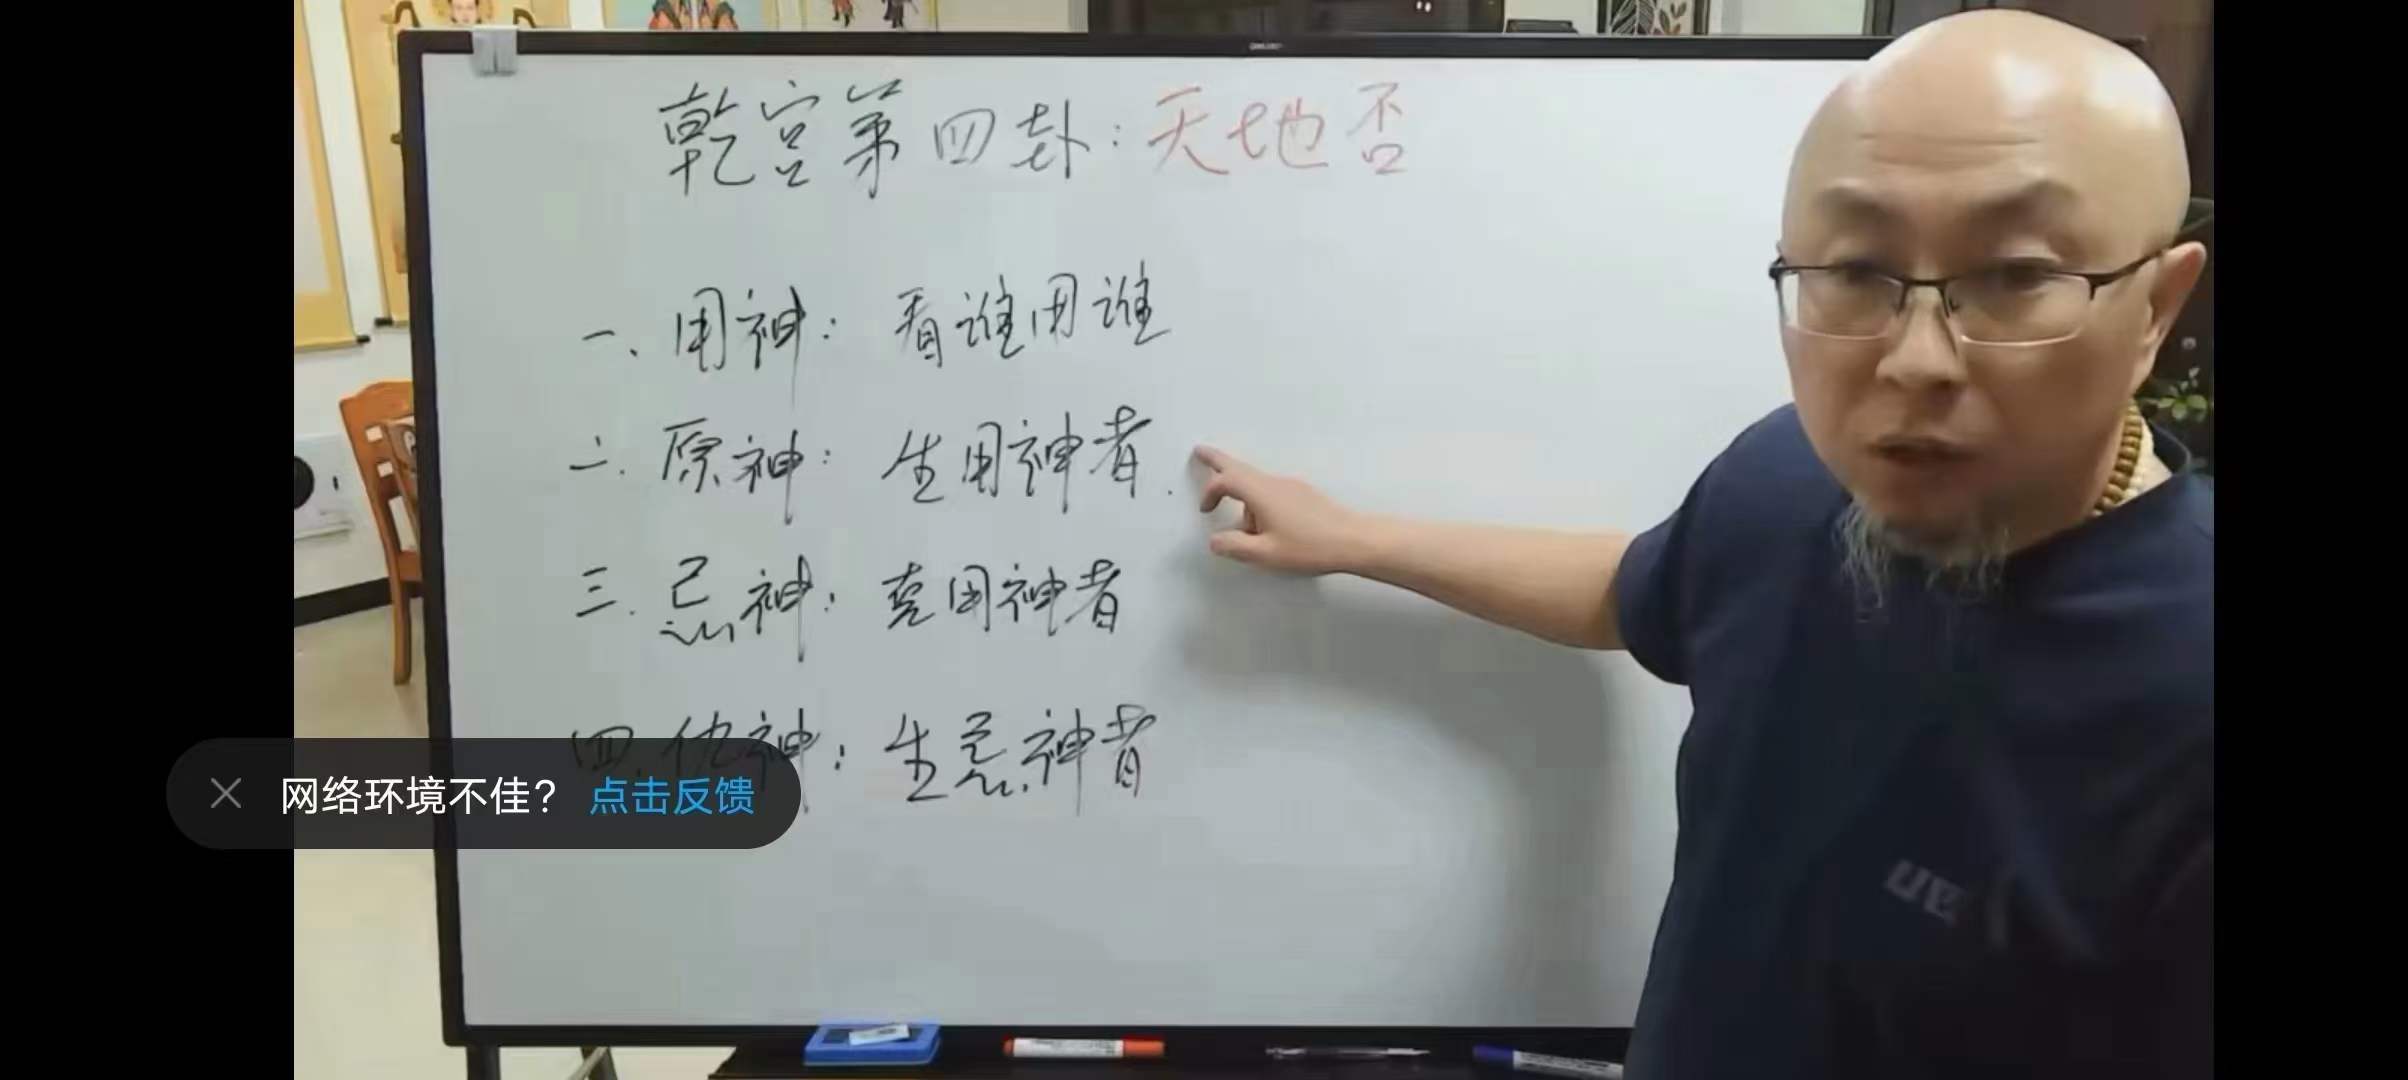 乾宫第四卦:天地否
一、用神:看谁用谁
二.原神:生用神者.
三.忌神:克用神者
四.仇神:生忌神者
网络环境不佳? 点击反馈